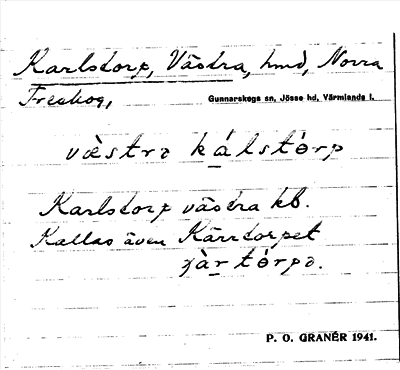 Karlstorp, Västra, hmd, Norra
Treskog,
Gunnarskogs sn, Jösse hd, Värmlands l.
væstrə kálstòrp
Karlstorp västra kb.
Kallas även Kärrtorpet
tòrpə.
P. O. GRANÉR 1941.